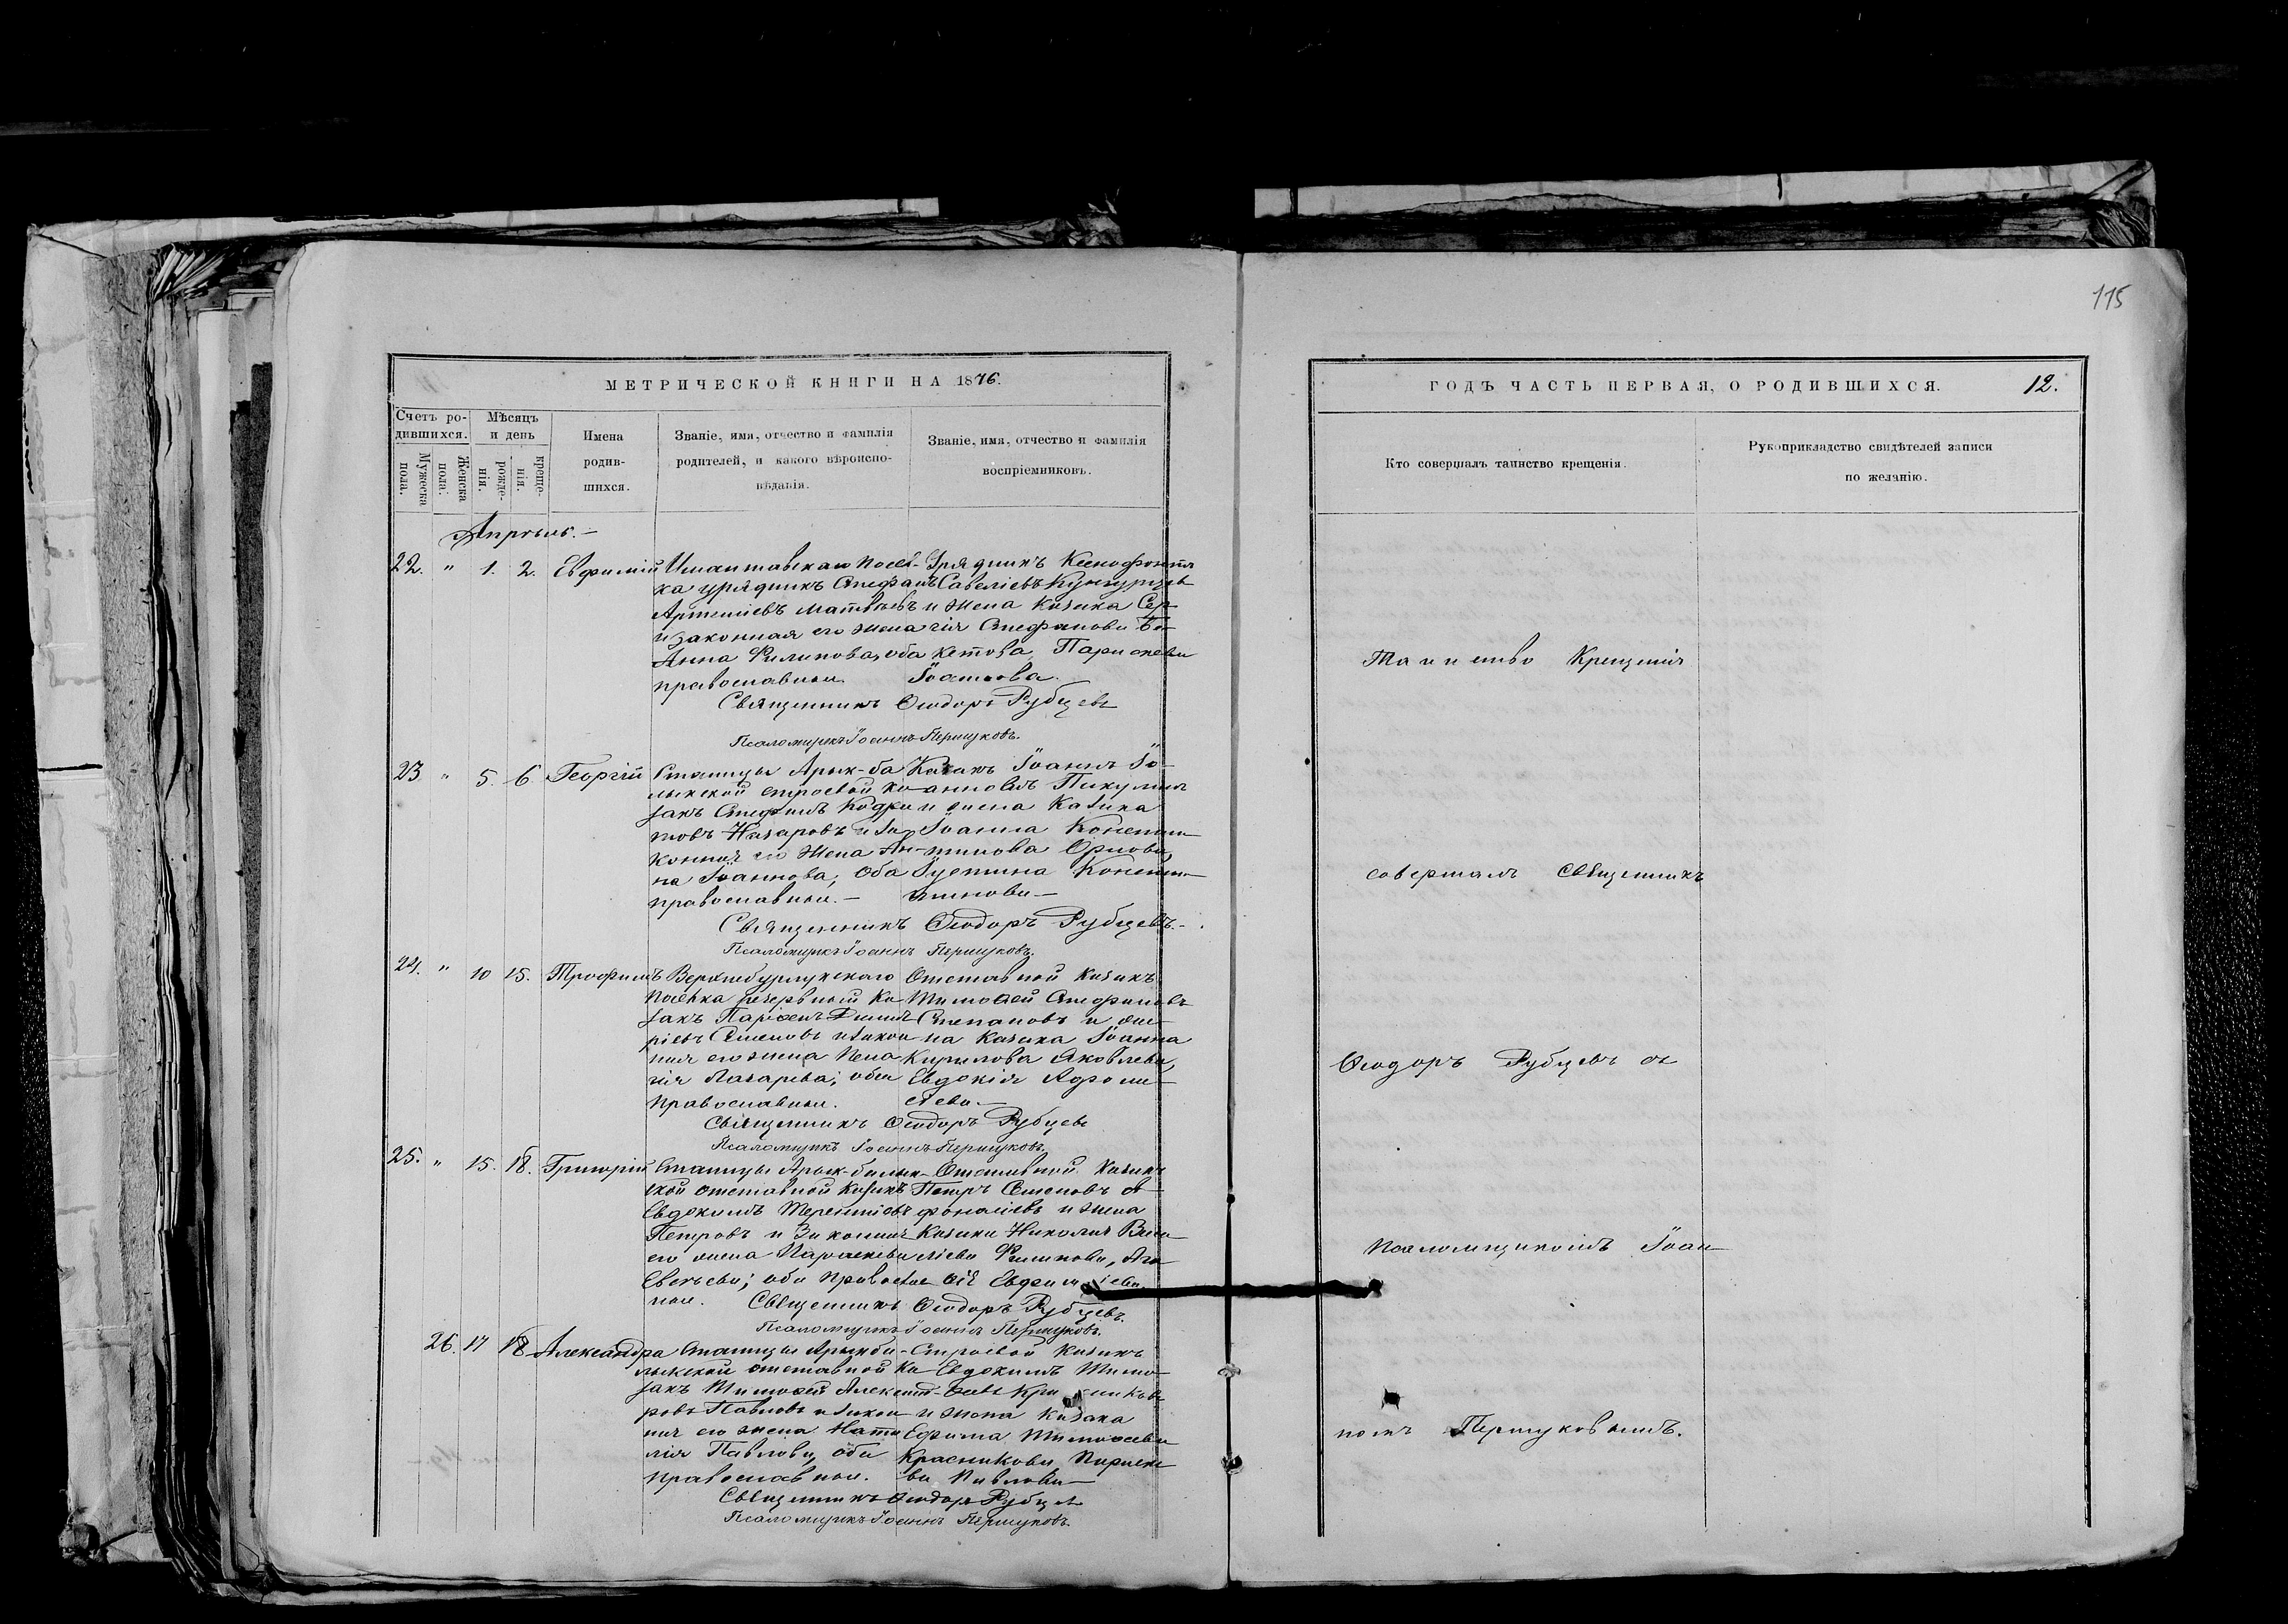 115
МЕТРИЧЕСКОЙ КНИГИ НА 1876.
Счетъ ро-
дившихся.
Мужеска пола.
Женска пола.
Мѣсяцъ
и день
рожде-
нія.
креще-
нія.
Имена
родив-
шихся.
Званіе, имя, отчество и фамилія
родителей, и какого вѣроиспо-
вѣданія.
Званіе, имя, отчество и фамилія
воспріемниковъ.
Апрѣль.—
22. " 1. 2. Евфимій
Имантавскаго посел-
ка урядникъ Стефанъ
Артеміевъ Матвѣевъ
и законная его жена
Анна Филипова, оба
православные.
Урядникъ Ксенофонтъ
Савеліевъ Кунгурцевъ
и жена казака Сер-
гія Стефанова Бе-
кетова Параскева
Іоаннова.
Священникъ Ѳеодоръ Рубцевъ
Псаломщикъ Іоаннъ Першуковъ.
23 " 5. 6 Георгій
Станицы Арык-ба
лыкской строевой ка
закъ Стефанъ Кодра
товъ Назаровъ и за
конная его жена Ан-
на Іоаннова; оба
православные.—
Казакъ Іоаннъ Іо-
анновъ Пикулинъ
и жена казака
Іоанна Констан-
тинова Орлова,
Іустина Констан-
тинова—
Священникъ Ѳеодоръ Рубцевъ.-
Псаломщикъ Іоаннъ Першуковъ.
24. " 10 15. Трофимъ
Верхнебурлукскаго
поселка резервный ка
закъ Парѳенъ Димит
ріевъ Семеновъ и закон
ная его жена Пела
гія Лазарева; оба
православные.
Отставной казакъ
Тимоѳей Стефановъ
Степановъ и же-
на казака Іоанна
Кирилова Яковлева,
Евдокія
Священникъ Ѳеодоръ Рубцевъ
Псаломщикъ Іоаннъ Першуковъ.
25. " 15. 18. Григорій
Станицы Арык-балык-
ской отставной казакъ
Евдокимъ Терентіевъ
Петровъ и законная
его жена Параскева
оба православ
ные.
Отставной казакъ
Петръ Семеновъ А-
фонасіевъ и жена
казака Николая Васи-
ліева Филипова, Ага
ѳія
Священникъ Ѳеодоръ Рубцевъ.
Псаломщикъ Іоаннъ Першуковъ.
26. 17 18 Александра
Станицы Арыкба-
лыкской отставной ка
закъ Тимоѳей Александ-
ровъ Павловъ и закон
ная его жена Ната
лія Павлова, оба
православные.
Строевой казакъ
Евдокимъ Тимо-
ѳеевъ
и жена казака
Ефима Тимоѳеева
Красникова Параске
ва Павлова—
Священникъ Ѳеодоръ Рубцевъ
Псаломщикъ Іоаннъ Першуковъ.
ГОДЪ ЧАСТЬ ПЕРВАЯ, О РОДИВШИХСЯ. 12.
Кто совершалъ таинство крещенія.
Рукоприкладство свидѣтелей записи
по желанію.
Таинство Крещенія
совершалъ Священникъ
Ѳеодоръ Рубцевъ съ
Псаломщикомъ Іоан-
номъ Першуковымъ.